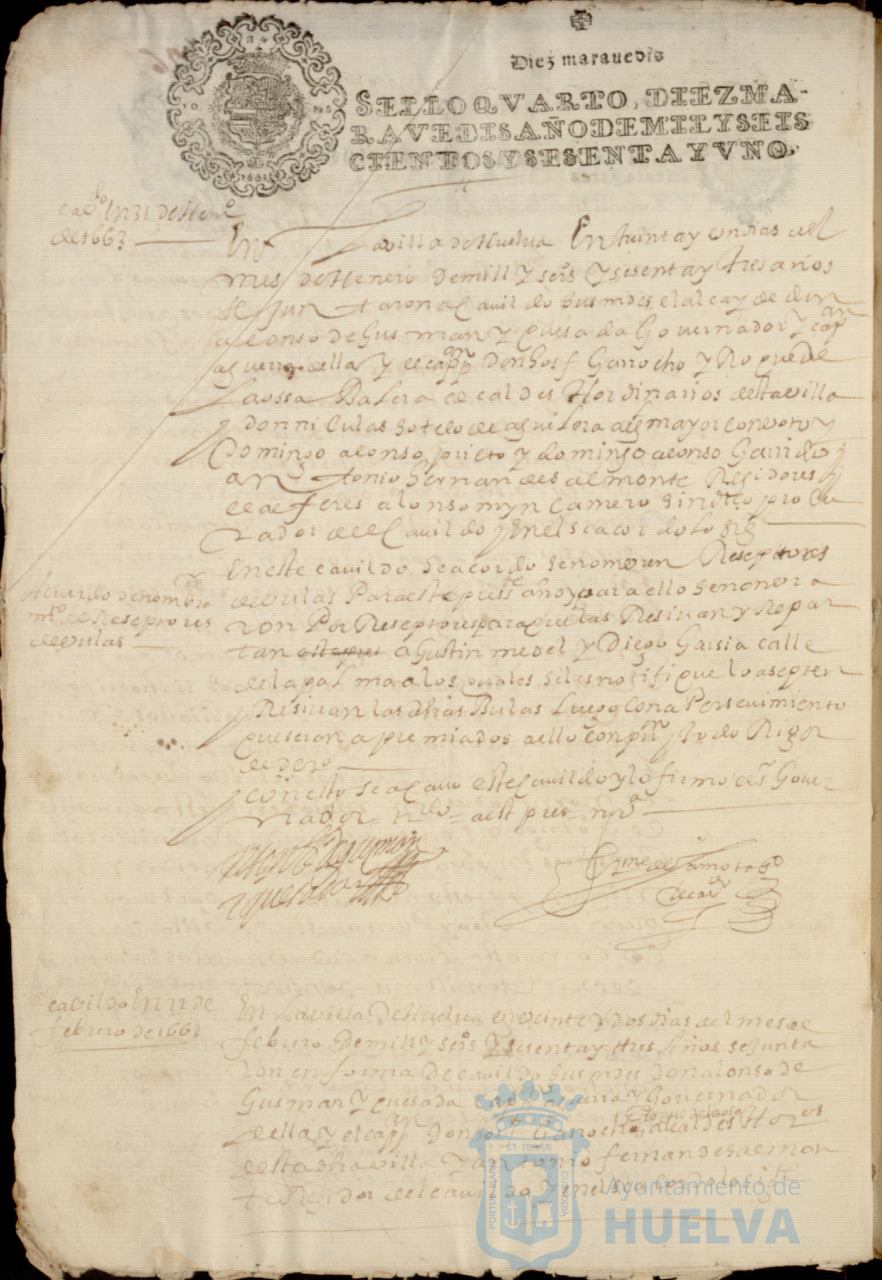 Diez maravedis
SELLO QVARTO, DIEZ MA-
RAVEDIS AÑO DE MIL Y SEIS
CIENTOS Y SESENTA Y VNO.
1661
cavdo En 31 de Henro
de 1663
En La villa de Huelua En treinta y un dias del
mes de Henero de mill y seis y sesenta y tres años
se juntaron a cavildo sus mdes el alcayde don
alonso de Gusman y quesada Governador y capp an
a guerra della y el capp an Don Hosf Garrocho y Roque de
La ossa Alcaldes Hordinarios desta villa
y don niculas sotelo de aguilera alg mayor con voto y
Domingo alonso prieto y domingo alonso Garrido y
antonio hernandes almonte Regidores y
el alferes alonso myn camero sindico procu
rador del cavildo y En el se acordo lo sig
Acuerdo de nombra
mto de Reseptores
de vulas
En este cavildo se acordo se nombren Reseptores
de vulas Para este press te año y para ello se nonbra
ron Por Reseptores para que las Resivan y Repar
tan a Agustin medel y Diego Garsia calle
de la palma a los quales se les notifique lo asepten
y Resivan las dhas Bulas Luego con a Persevimiento
que seran apremiados a ello con pn y todo Rigor
de dero
y con esto se acavo este cavildo y lo firmo el sr Gover
nador
Alonso de gusman
y quesada
de cavdo
cavildo En 22 de
febrero de 1663
En La villa de Huelua en veinte y dos dias del mes de
febrero De mill y seis y sesenta y tres Años se junta
ron en forma de cavildo sus mdes don alonso de
Gusman y quesada capp an a guerra y Governador
della y el capp an Don hosf Garrocho y Roque de la osa alcaldes Hor os
desta dha villa y antonio fernandes almon
te Regidor del cavildo y en el se acordo lo sig te
PORTUS MARIS
ET TERRAE
CUSTODIA
Ayuntamiento de
HUELVA